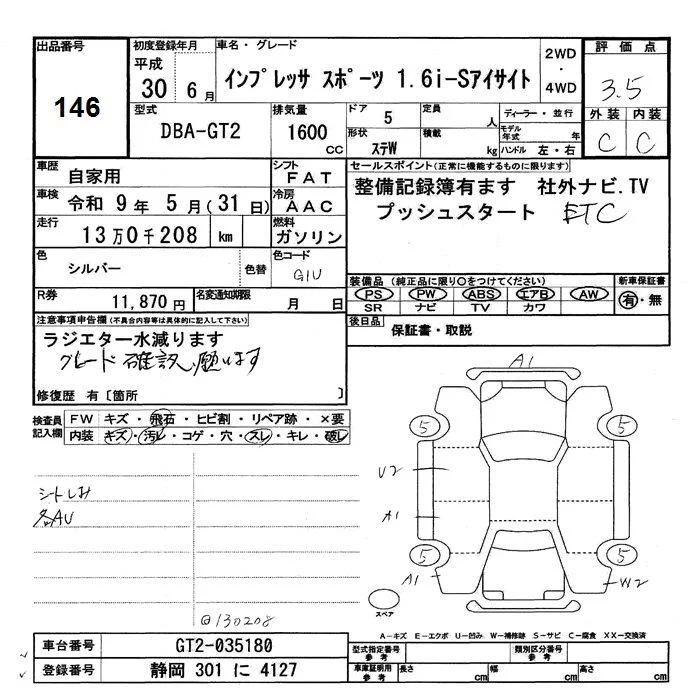 出品番号
146
初度登録年月
平成
30 6月
車名・グレード
インプレッサ スポーツ 1.6i-Sアイサイト
2WD
・
4WD
評価点
3.5
外装 内装
C C
型式
DBA-GT2
排気量
1600
cc
ドア 5
形状
ステW
定員
人
積載
kg
ディーラー・並行
モデル年式 年
ハンドル 左・右
車歴
自家用
シフト
FAT
車検
令和 9年 5月(31日)
冷房
AAC
走行
13万0千208 km
燃料
ガソリン
色
シルバー
色替
色コード
G1U
R券
11,870円
名変通知期限
月 日
セールスポイント(正常に機能するものに限ります)
整備記録簿有ます 社外ナビ.TV
プッシュスタート ETC
装備品(純正品に限り○をつけてください)
PS PW ABS エアB AW
SR ナビ TV カワ
新車保証書
有・無
後日品
保証書・取説
注意事項申告欄(不具合内容等は具体的に記入して下さい)
ラジエター水減ります
グレード確認願います
修復歴 有〔箇所 〕
検査員記入欄
FW キズ・飛石・ヒビ割・リペア跡・×要
内装 キズ・汚レ・コゲ・穴・スレ・キレ・破レ
シートしみ
各AU
@130208
A1
5
5
U2
A1
5
5
A1
W2
スペア
A-キズ E-エクボ U-凹み W-補修跡 S-サビ C-腐食 XX-交換済
車台番号
GT2-035180
登録番号
静岡 301 に 4127
型式指定番号
参考
類別区分番号
参考
車庫証明用
参考
長さ cm
幅 cm
高さ cm